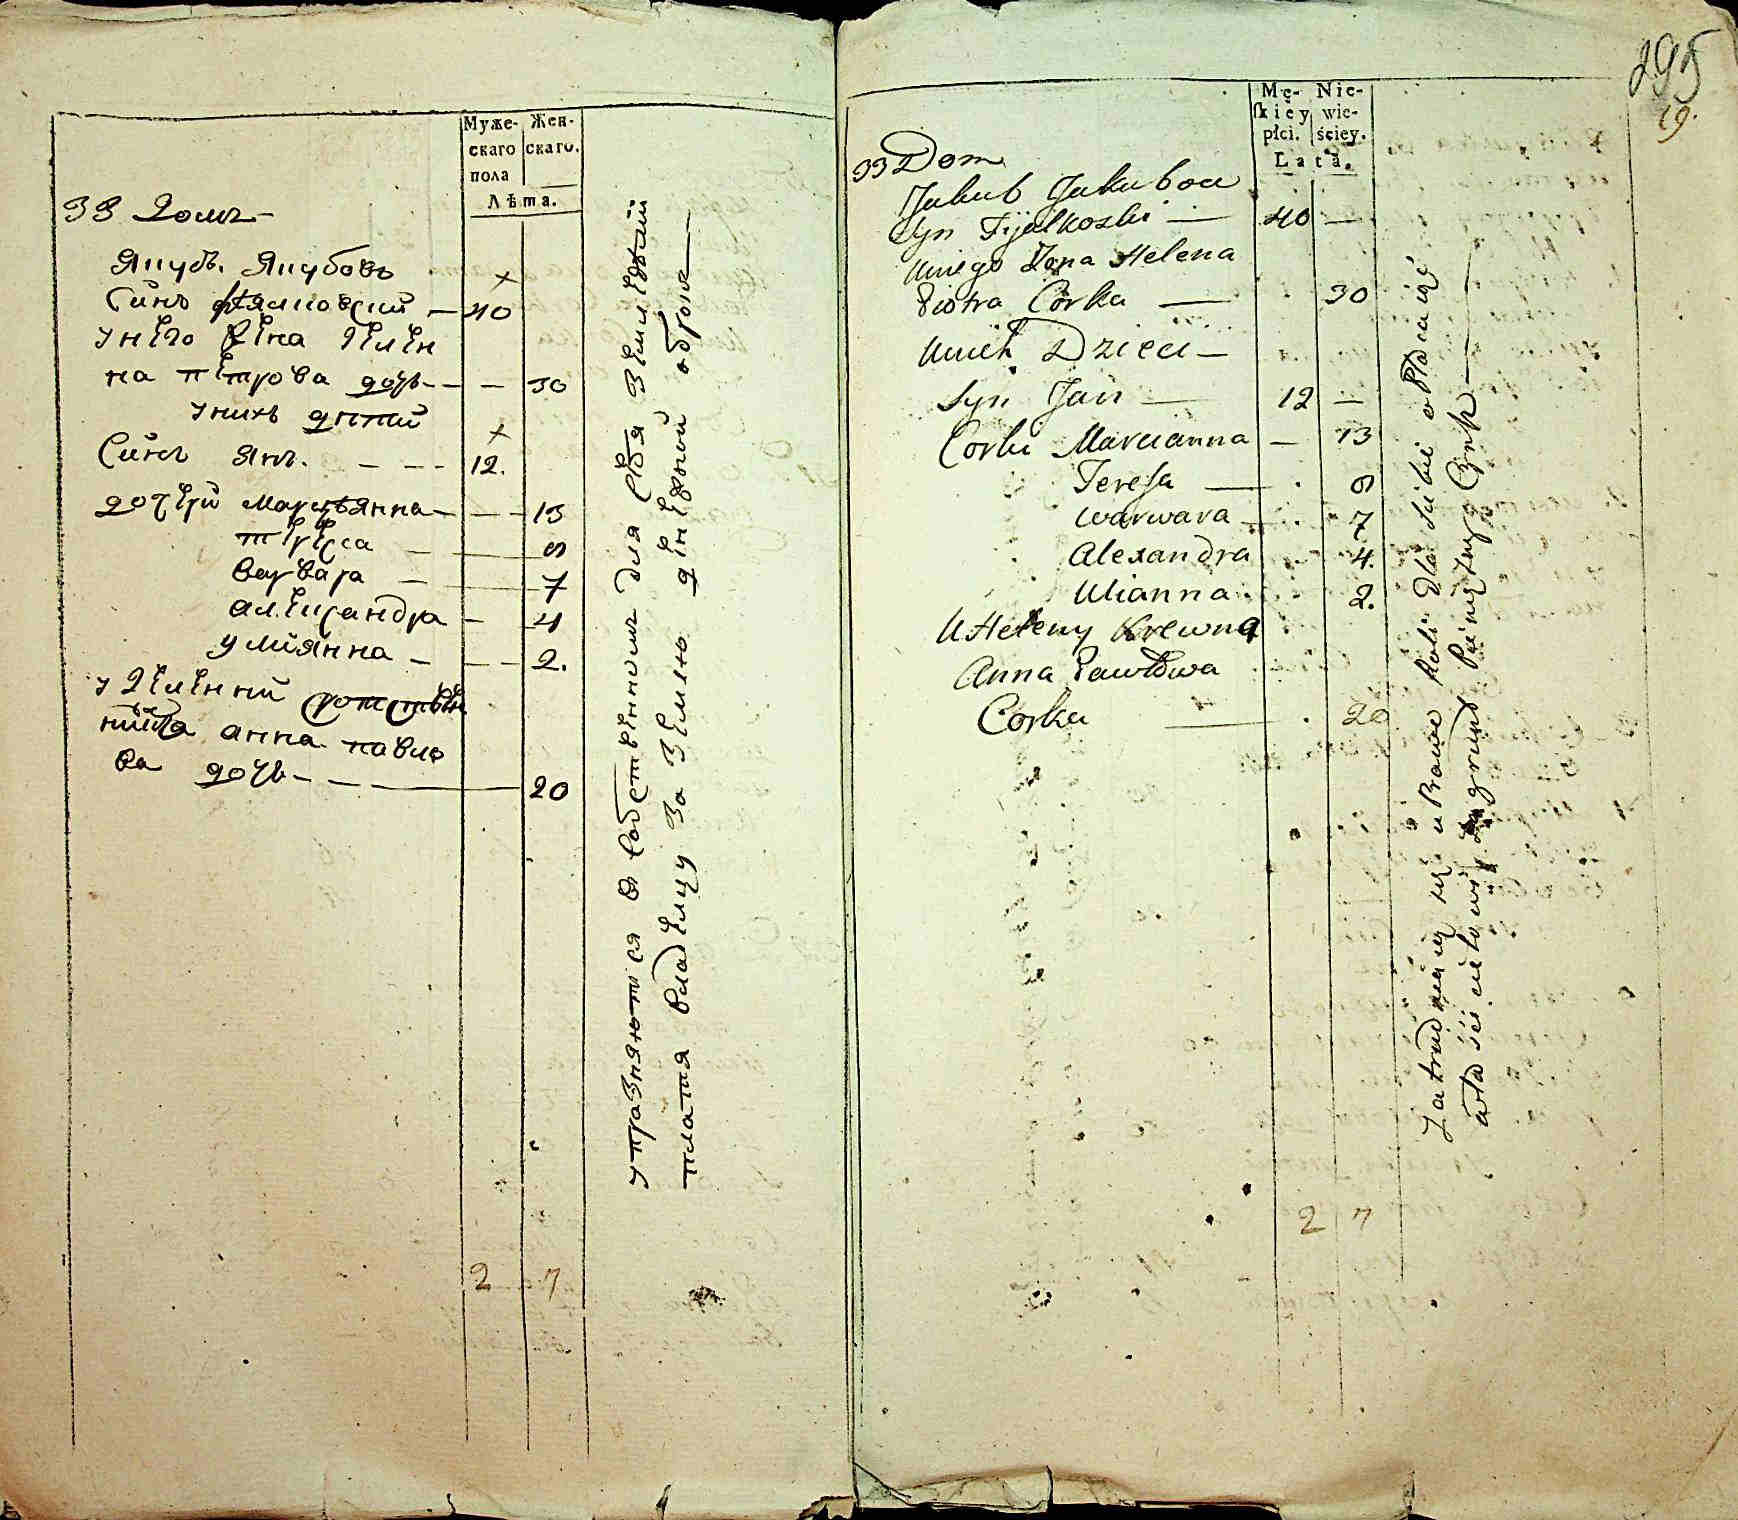 Муже- Жен-
скаго скаго.
пола
Лѣта.
33 Домъ
Якубъ Якубовъ
Синъ Фіялковский — 40
у него Жена Гелен
на Петрова дочь — — 30
у нихъ дѣтей
Синъ Янъ. — — — 12.
дочери Марцъянна — — — 13
Тереса — — 9
Варвара — — 7
Александра — 4
Улиянна — — 2.
у Геленни родствен
ница Анна Павло
ва дочь — — — 20
2 7
упразняются в собственномъ для себя земледелии
платя владелцу за землю денежной оброкъ —
295
19.
Mę- Nie-
skiey wie-
płci. ściey.
Lata.
33 Dom
Jakub Jakubow
Syn Fijałkoski — 40 —
U niego Żona Helena
Piotra Córka — 30
U nich Dzieci —
Syn Jan — 12 —
Corki Marcianna — 13
Teresa — 9
Warwara 7
Alexandra 4.
Ulianna 2.
U Heleny Krewna
Anna Pawłowa
Corka — 20
2 7
Zatrudniaią się u Prawie Roli dla siebie opłacaiąc
właścicielowi za grunt Pienieżny Czynsz —